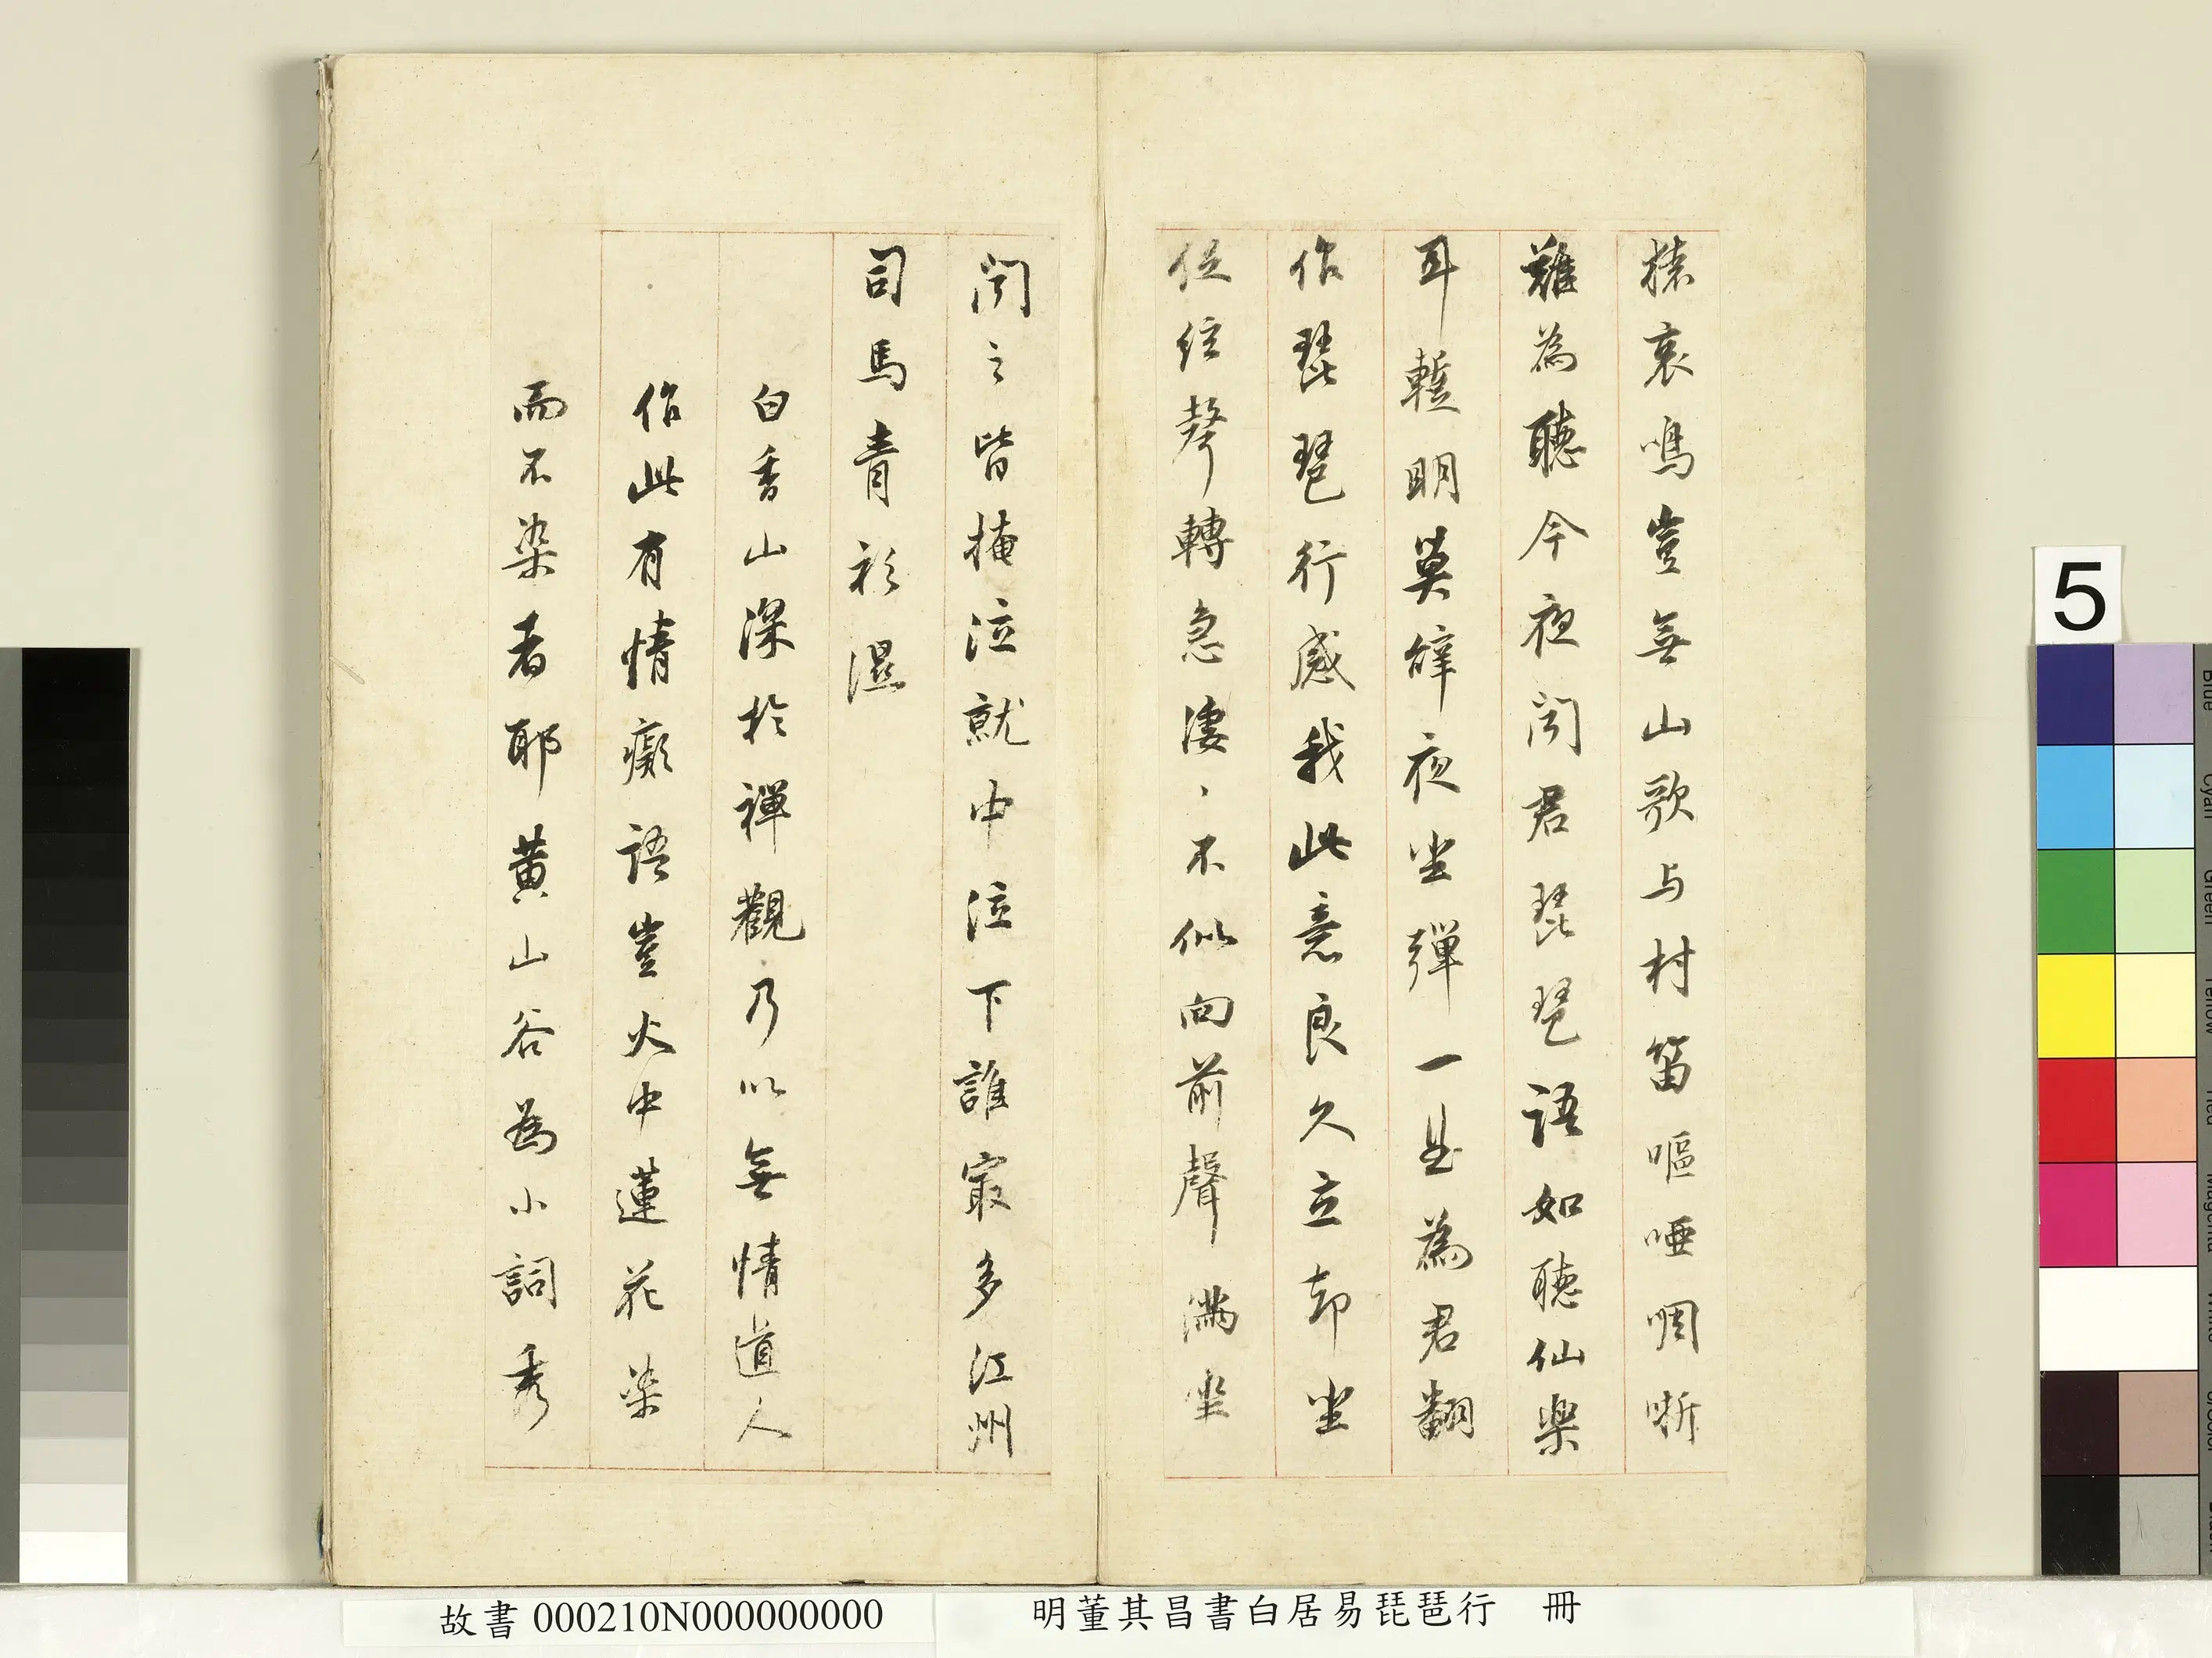 猿哀鳴豈無山歌与村笛嘔唖啁哳
難為聽今夜聞君琵琶語如聽仙樂
耳蹔明莫辞夜坐彈一曲為君翻
作琵琶行感我此意良久立却坐
促絃聲轉急淒、不似向前聲滿坐
聞之皆掩泣就中泣下誰寂多江州
司馬青衫濕
白香山深於禪觀乃以無情道人
作此有情癡語豈火中蓮花染
而不染者耶黄山谷為小詞秀
5
Blue
Cyan
Green
Yellow
Red
Magenta
White
3/Color
Black
故書 000210N000000000
明董其昌書白居易琵琶行 冊